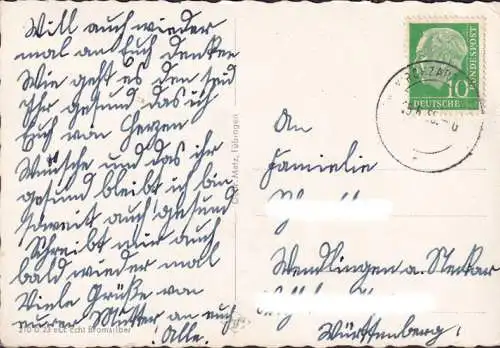 Will auch wieder
mal an Euch denken
Wie geht es den seid
Ihr gesund das ich
Euch von Herzen
Wünsche und das ihr
gesund bleibt ich bin
soweit auch gesund
Schreibt mir auch
bald wieder mal
Viele Grüße von
eurer Mutter an euch
Alle.
210 D 23 ect. Echt Bromsilber
Metz, Tübingen
10
DEUTSCHE
BUNDESPOST
An
Familie
Wendlingen a. Neckar
Württemberg